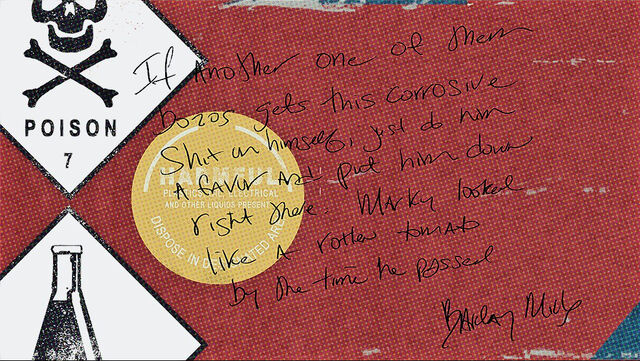 POISON
7
HARMFUL
AND OTHER LIQUIDS PRESENT
DISPOSE IN
If Another one of them
Bozos gets this corrosive
Shit on himself, just do him
A favor And put him down
right there. Marky looked
like A rotten tomato
by the time he passed
Barclay